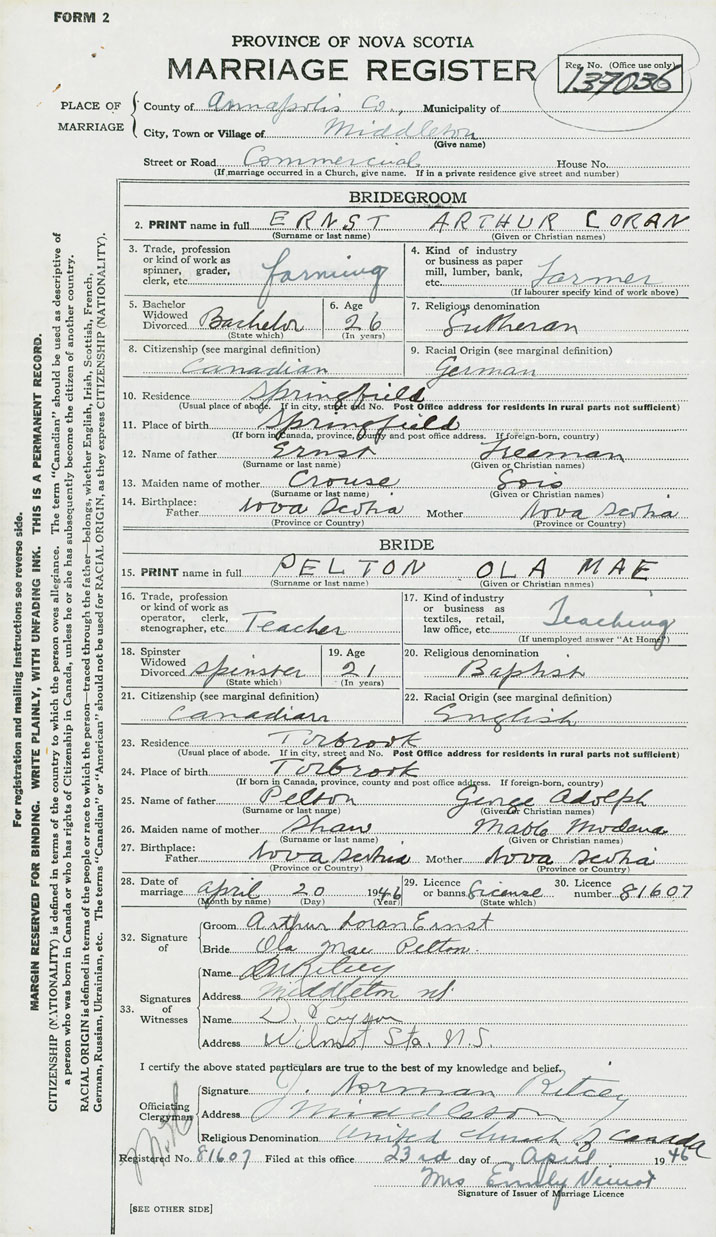 FORM 2
PROVINCE OF NOVA SCOTIA
MARRIAGE REGISTER
Reg. No. (Office use only)
137036
PLACE OF MARRIAGE
County of Annapolis Co., Municipality of
City, Town or Village of Middleton
(Give name)
Street or Road Commercial House No.
(If marriage occurred in a Church, give name. If in a private residence give street and number)
BRIDEGROOM
2. PRINT name in full ERNST ARTHUR LORAN
(Surname or last name) (Given or Christian names)
3. Trade, profession or kind of work as spinner, grader, clerk, etc. farming
4. Kind of industry or business as paper mill, lumber, bank, etc. Farmer
(If labourer specify kind of work above)
5. Bachelor Widowed Divorced Bachelor
(State which)
6. Age 26
(In years)
7. Religious denomination Lutheran
8. Citizenship (see marginal definition) Canadian
9. Racial Origin (see marginal definition) German
10. Residence Springfield
(Usual place of abode. If in city, street and No. Post Office address for residents in rural parts not sufficient)
11. Place of birth Springfield
(If born in Canada, province, county and post office address. If foreign-born, country)
12. Name of father Ernst Freeman
(Surname or last name) (Given or Christian names)
13. Maiden name of mother Crouse Lois
(Surname or last name) (Given or Christian names)
14. Birthplace: Father Nova Scotia Mother Nova Scotia
(Province or Country) (Province or Country)
BRIDE
15. PRINT name in full PELTON OLA MAE
(Surname or last name) (Given or Christian names)
16. Trade, profession or kind of work as operator, clerk, stenographer, etc. Teacher
17. Kind of industry or business as textiles, retail, law office, etc. Teaching
(If unemployed answer "At Home")
18. Spinster Widowed Divorced Spinster
(State which)
19. Age 21
(In years)
20. Religious denomination Baptist
21. Citizenship (see marginal definition) Canadian
22. Racial Origin (see marginal definition) English
23. Residence Torbrook
(Usual place of abode. If in city, street and No. Post Office address for residents in rural parts not sufficient)
24. Place of birth Torbrook
(If born in Canada, province, county and post office address. If foreign-born, country)
25. Name of father Pelton George Adolph
(Surname or last name) (Given or Christian names)
26. Maiden name of mother Shaw Modena
(Surname or last name) (Given or Christian names)
27. Birthplace: Father Nova Scotia Mother Nova Scotia
(Province or Country) (Province or Country)
28. Date of marriage April 20 1946
(Month by name) (Day) (Year)
29. Licence or banns License
(State which)
30. Licence number 81607
32. Signature of
Groom Arthur Loran Ernst
Bride Ola Mae Pelton
33. Signatures of Witnesses
Name
Address Middleton NS.
Name D.
Address Wilmot Sta. N.S.
I certify the above stated particulars are true to the best of my knowledge and belief.
Officiating Clergyman
Signature J. Norman Ritcey
Address Middleton
Religious Denomination United Church of Canada
Registered No. 81607 Filed at this office 23rd day of April 1946
Mrs Emily
Signature of Issuer of Marriage Licence
[SEE OTHER SIDE]
For registration and mailing instructions see reverse side.
MARGIN RESERVED FOR BINDING. WRITE PLAINLY, WITH UNFADING INK. THIS IS A PERMANENT RECORD.
CITIZENSHIP (NATIONALITY) is defined in terms of the country to which the person owes allegiance. The term "Canadian" should be used as descriptive of
a person who was born in Canada or who has rights of Citizenship in Canada, unless he or she has subsequently become the citizen of another country.
RACIAL ORIGIN is defined in terms of the people or race to which the person—traced through the father—belongs, whether English, Irish, Scottish, French,
German, Russian, Ukrainian, etc. The terms "Canadian" or "American" should not be used for RACIAL ORIGIN, as they express CITIZENSHIP (NATIONALITY).